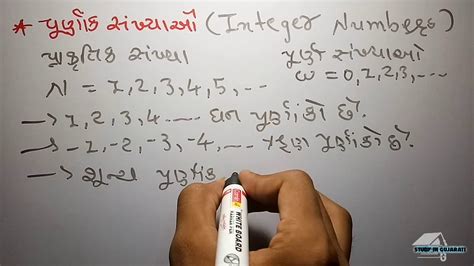 * પુર્ણાંક સંખ્યાઓ (Integer Numbers)
પ્રાકૃતિક સંખ્યા પુર્ણ સંખ્યાઓ
N = 1,2,3,4,5,... ω = 0,1,2,3,...
→ 1,2,3,4.... ઘન પુર્ણાંકો છે.
→ -1,-2,-3,-4,... ઋણ પુર્ણાંકો છે.
→ શૂન્ય પુર્ણાંક
WHITE BOARD
MARKER PEN
STUDY IN GUJARATI